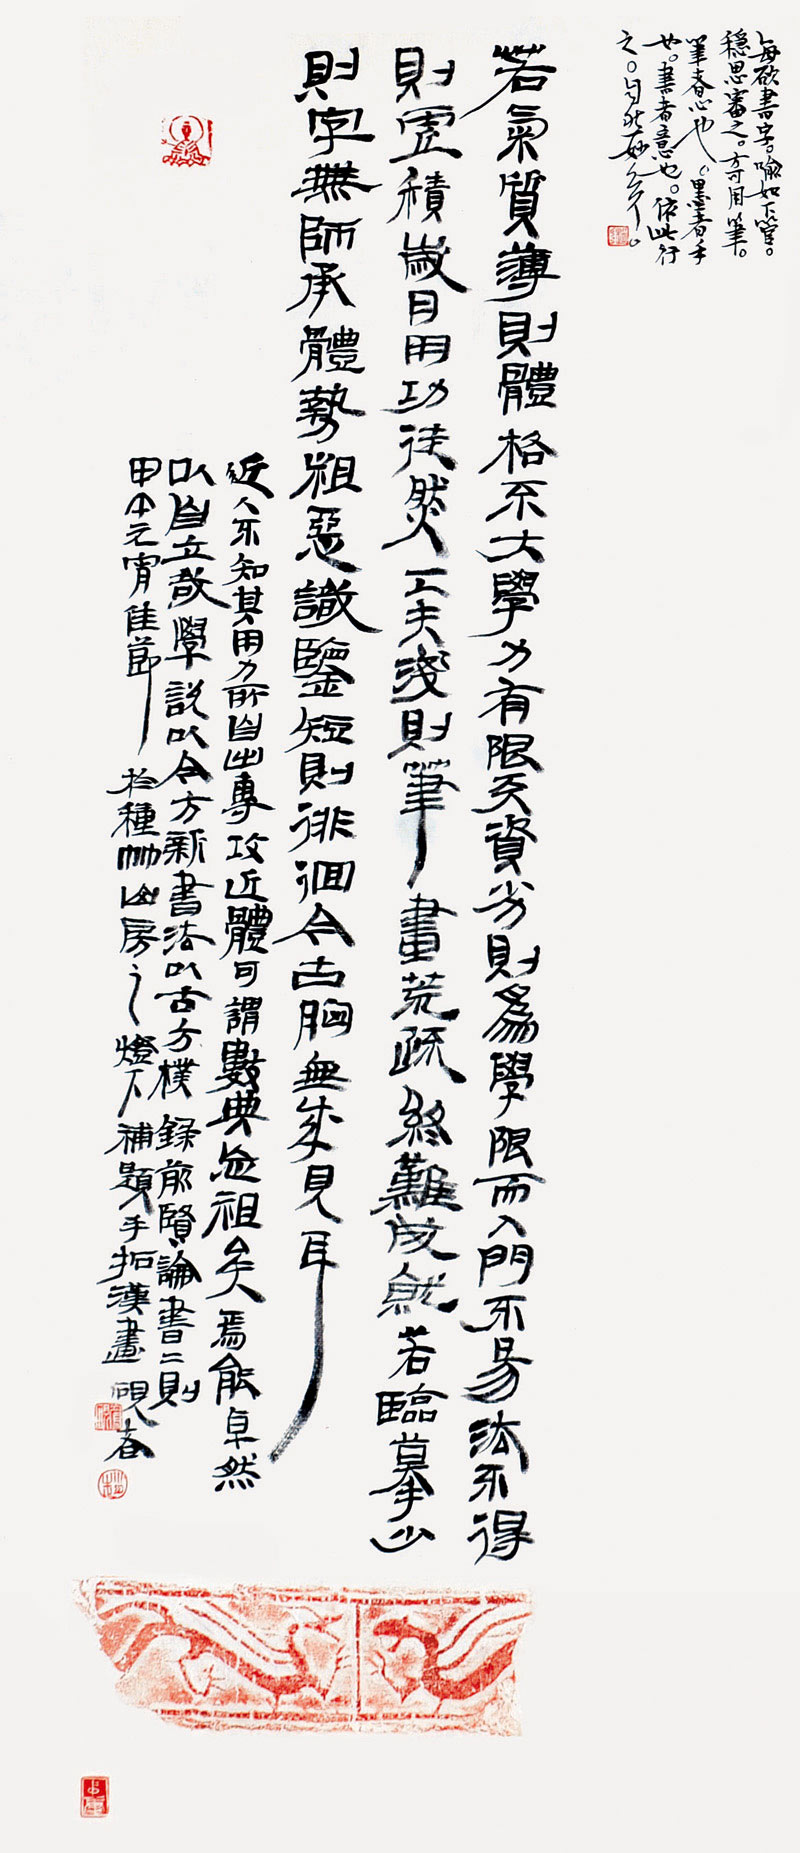 每欲書字。喻如下營。
穩思審之。方可用筆。
筆者心也。墨者手
也。書者意也。依此行
之。自然妙矣。
若氣質薄則體格不大學力有限天資劣則爲學限而入門不易法不得
則虛積歲月用功徒然工夫淺則筆畫荒疏終難成就若臨摹少
則字無師承體勢粗惡識鑒短則徘徊今古胸無成見耳
近人不知其用力所自出專攻近體可謂數典忘祖矣焉能卓然
以自立哉學說以今方新書法以古方樸 錄前賢論書二則
甲午元宵佳節於種山房之燈下補題手拓漢畫 硯春